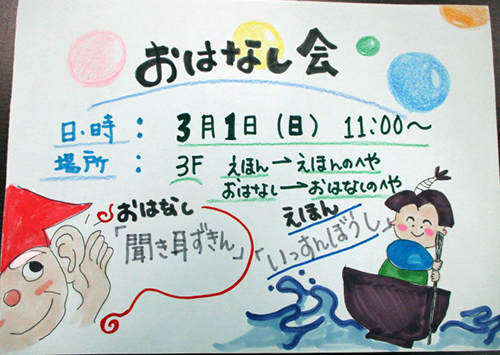 おはなし会
日時: 3月1日(日) 11:00~
場所: 3F えほん→えほんのへや
おはなし→おはなしのへや
おはなし
「聞き耳ずきん」
えほん
「いっすんぼうし」